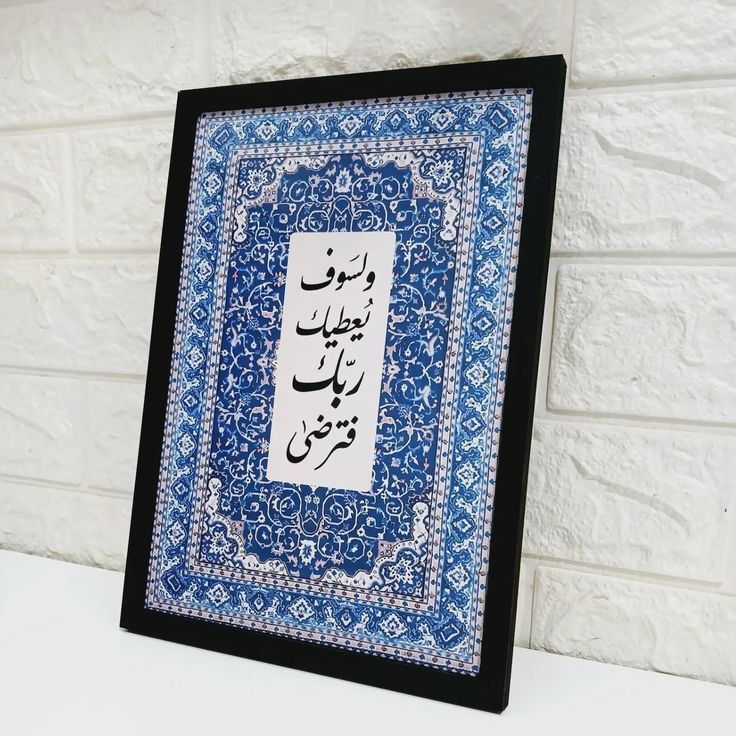 ولسَوف
يُعطيك
ربّك
فترضىٰ